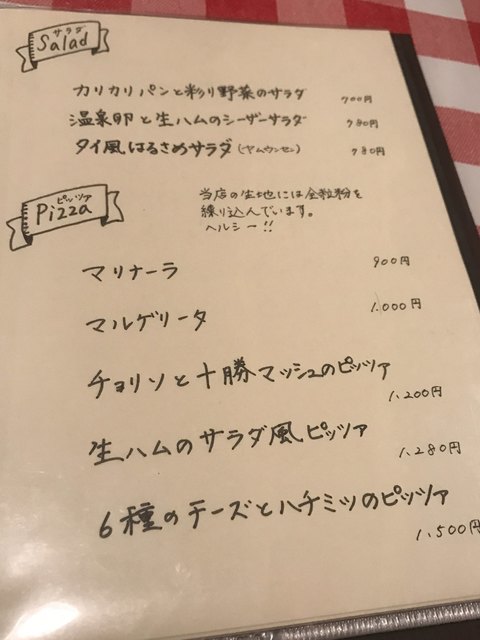 サラダ
Salad
カリカリパンと彩り野菜のサラダ 700円
温泉卵と生ハムのシーザーサラダ 780円
タイ風はるさめサラダ(ヤムウンセン) 780円
ピッツァ
Pizza
当店の生地には全粒粉を
練り込んでいます。
ヘルシー!!
マリナーラ 900円
マルゲリータ 1,000円
チョリソと十勝マッシュのピッツァ
1,200円
生ハムのサラダ風ピッツァ
1,280円
6種のチーズとハチミツのピッツァ
1,500円